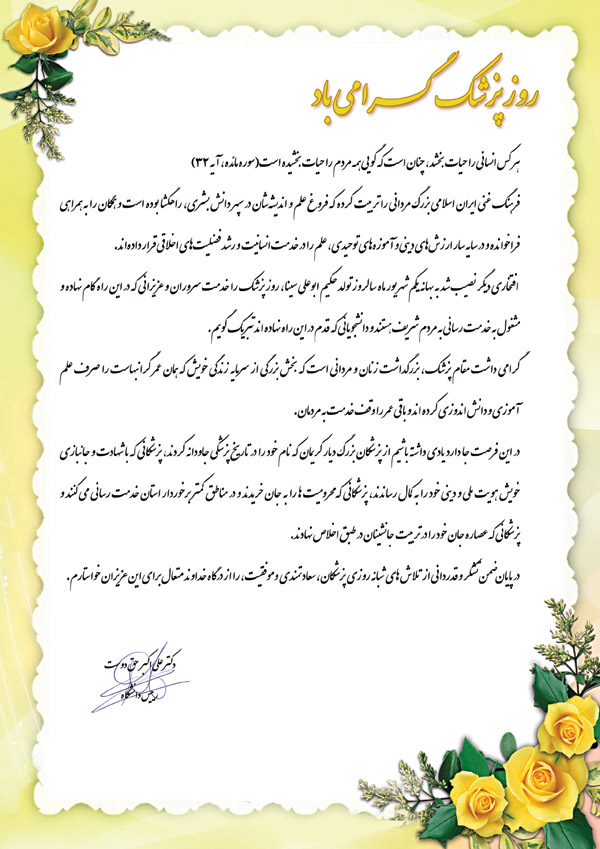 روز پزشک گرامی باد
هر کس انسانی را حیات بخشد، چنان است که گویی همه مردم را حیات بخشیده است (سوره مائده، آیه ۳۲)
فرهنگ غنی ایران اسلامی بزرگ مردانی را تربیت کرده که فروغ علم و اندیشه‌شان در سپهر دانش بشری، راهگشا بوده است و همگان را به همراهی
فراخوانده و در سایه سار ارزش های دینی و آموزه های توحیدی، علم را در خدمت انسانیت و رشد فضلیت های اخلاقی قرار داده‌اند.
افتخاری دیگر نصیب شد به بهانه یکم شهریور ماه سالروز تولد حکیم ابوعلی سینا، روز پزشک را خدمت سروران و عزیزانی که در این راه گام نهاده و
مشغول به خدمت رسانی به مردم شریف هستند و دانشجویانی که قدم در این راه نهاده اند تبریک گویم.
گرامی داشت مقام پزشک، بزرگداشت زنان و مردانی است که بخش بزرگی از سرمایه زندگی خویش که همان عمر گرانبهاست را صرف علم
آموزی و دانش اندوزی کرده اند و باقی عمر را وقف خدمت به مردمان.
در این فرصت جا دارد یادی داشته باشیم از پزشکان بزرگ دیار کریمان که نام خود را در تاریخ پزشکی جاودانه کردند، پزشکانی که با شهادت و جانبازی
خویش هویت ملی و دینی خود را به کمال رساندند، پزشکانی که محرومیت ها را به جان خریدند و در مناطق کمتر برخوردار استان خدمت رسانی می کنند و
پزشکانی که عصاره جان خود را در تربیت جانشینان در طبق اخلاص نهادند.
در پایان ضمن تشکر و قدردانی از تلاش های شبانه روزی پزشکان، سعادتمندی و موفقیت، را از درگاه خداوند متعال برای این عزیزان خواستارم.
دکتر علی اکبر حق دوست
رییس دانشگاه